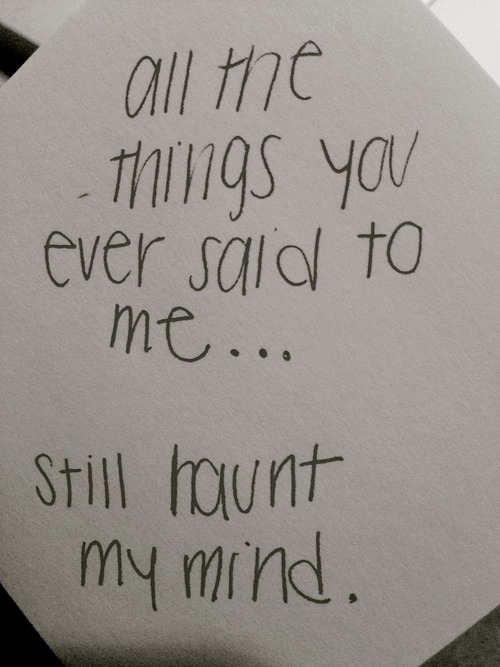 all the
things you
ever said to
me...
still haunt
my mind.